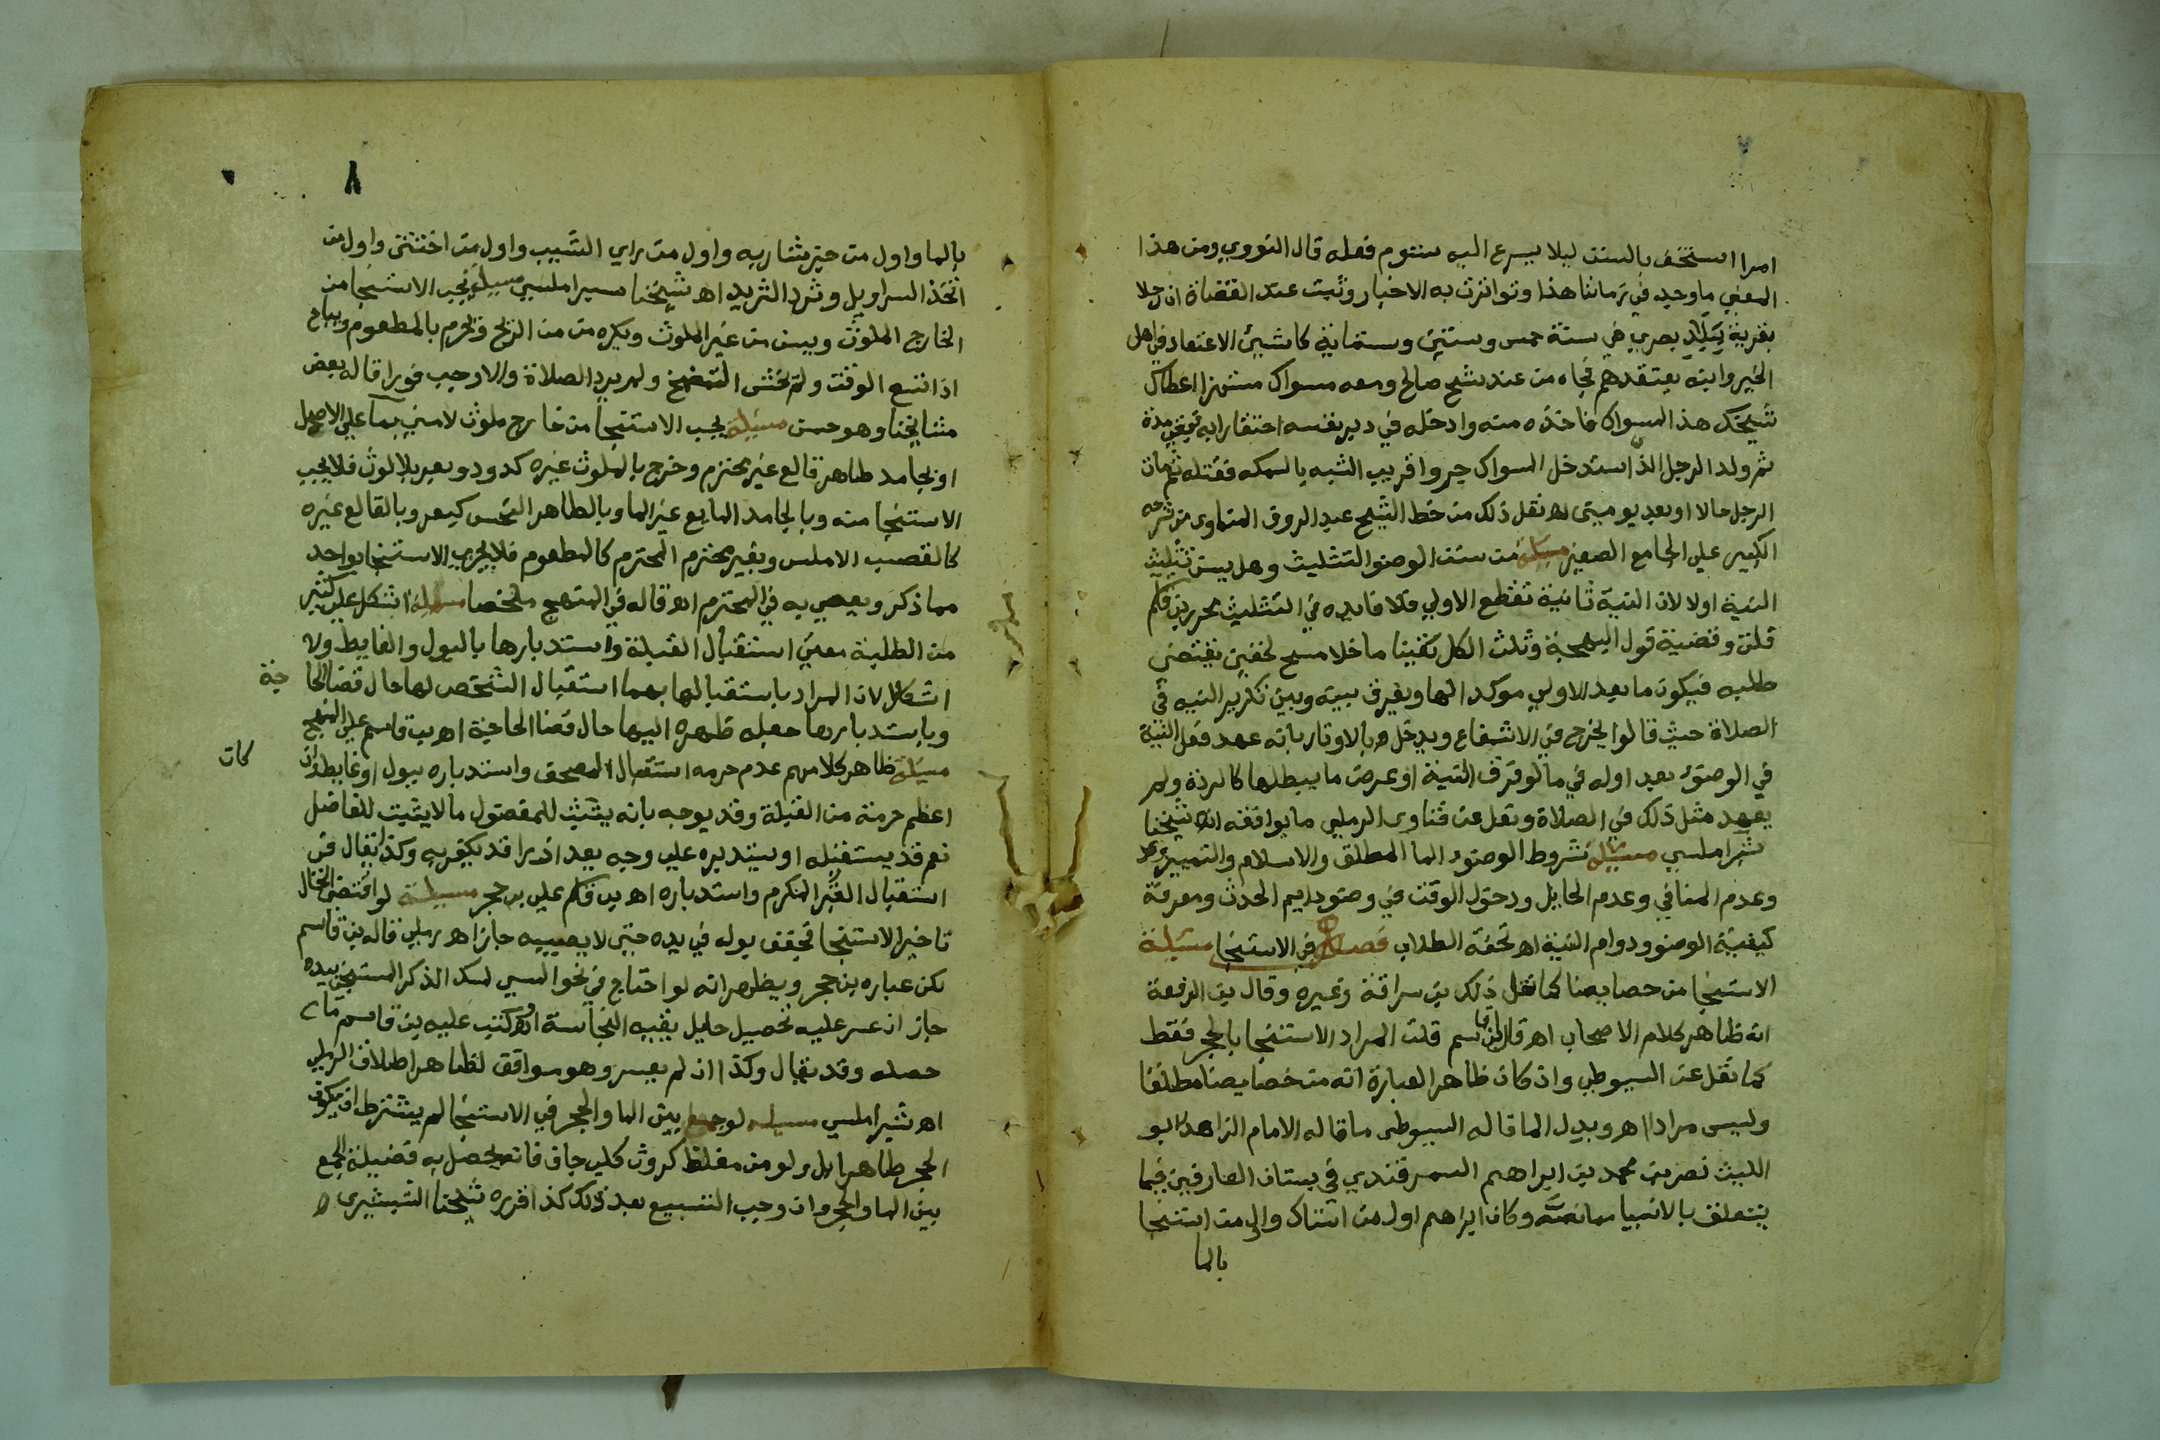 امرا استخف بالسنن ليلا يسرع اليه شوم فعله قال النووي ومن هذا
المعني ما وجد في زماننا هذا وتواترت به الاخبار وثبت عند القضاة ان رجلا
بقرية ببلاد بصري في سنة خمس وستين وستماية كا شيئ الاعتقاد في اهل
الخير وابنه يعتقدهم فجاء من عند شيخ صالح ومعه مسواك مستهزا اعطاك
شيخك هذا المسواك فاخذه منه وادخله في دبر نفسه احتقارا به فبقي مدة
ثم ولد الرجل الذي استدخل السواك جروا قريب الشبه بالسمكه فقتله ثم مات
الرجل حالا او بعد يومين اه نقل ذلك من خط الشيخ عبد الروف المناوي من شرحه
الكبير علي الجامع الصغير مسئلة من سنن الوضو التثليث وهل يسن تثليث
النية اولا لان النية ثانية تقطع الاولي فلا فايده في التثليث محرر بن قاسم
قلت وقضية قول البهجة وثلث الكل يقينا ما خلا مسح لخفين يقتضي
طلبه فيكون ما بعد الاولي موكد الها ويفرق بينه وبين تكرير النيه في
الصلاة حيث قالوا يخرج في الاشفاع ويدخل بالاوتار بانه عهد فعل النية
في الوضوء بعد اوله في ما لو فرق النية او عرض ما يبطلها كالردة ولم
يعهد مثل ذلك في الصلاة ونقل عن فتاوي الرملي ما يوافقه اه شيخنا
شبراملسي مسئلة شروط الوضو الما المطلق والاسلام والتمييز
وعدم المنافي وعدم الحايل ودخول الوقت في وضو دايم الحدث ومعرفة
كيفية الوضو ودوام النية اه تحفة الطلاب فصل في الاستنجا مسئلة
الاستنجا من خصايصنا كما نقل ذلك بن سراقة وغيره وقال بن الرفعة
انه ظاهر كلام الاصحاب اه قال ابن قاسم قلت المراد الاستنجا بالحجر فقط
كما نقل عن السيوطي وان كان ظاهر العبارة انه من خصايصنا مطلقا
وليس مرادا اه ويدل لما قاله السيوطي ما قاله الامام الزاهد ابو
الليث نصر بن محمد بن ابراهيم السمرقندي في بستان العارفين فيما
يتعلق بالانبيا ما نصه وكان ابراهيم اول من استاك واول من استنجا
بالما
٨
بالما واول من جز شاربه واول من راي الشيب واول من اختتن واول من
اتخذ السراويل وثرد الثريد اه شيخنا شبراملسي مسئلة يجب الاستنجا من
الخارج الملوث ويسن من غير الملوث ويكره من من الريح ويحرم بالمطعوم ويباح
اذا اتسع الوقت ولم يخش التضمخ ولم يرد الصلاة والا وجب فورا قاله بعض
مشايخنا وهو حسن مسئلة يجب الاستنجا من خارج ملوث لا مني بما علي الاصل
او بجامد طاهر قالع غير محترم وخرج بالملوث غيره كدود وبعر بلا لوث فلا يجب
الاستنجا منه وبالجامد المايع غير الما وبالطاهر النجس كبعر وبالقالع غيره
كالقصب الاملس وبغير محترم المحترم كالمطعوم فلا يجزي الاستنجا بواحد
مما ذكر ويعصي به في المحترم اه قاله في المنهج ملخصا مسئلة اشكل علي كثير
من الطلبة معني استقبال القبلة واستدبارها بالبول والغايط ولا
اشكال لان المراد باستقبالها بهما استقبال الشخص لها حال قضا الحا
جة
وباستدبارها جعله ظهره اليها حال قضا الحاجة اه بن قاسم علي المنهج
مسئلة ظاهر كلامهم عدم حرمه استقبال المصحف واستدباره ببول او غايط وان
كان
اعظم حرمة من القبلة وقد يوجه بانه يثبت للمفضول ما لا يثبت للفاضل
نعم قد يستقبله او يستدبره علي وجه يعد ازرا قد يكفر به وكذا يقال في
استقبال القبر المكرم واستدباره اه بن قاسم علي بن حجر مسئلة لو اقتضي الحال
تاخير الاستنجا فجفف بوله في يده حتي لا يصيبه جاز اه رملي قاله بن قاسم
لكن عباره بن حجر ويظهر انه لو احتاج في نحو المشي لمسك الذكر المستنجي بيده
جاز ان عسر عليه تحصيل حايل يقيه النجاسة اه وكتب عليه بن قاسم ما
حصله وقد يقال وكذا ان لم يعسر وهو موافق لظاهر اطلاق الرملي
اه شبراملسي مسئله لو جمع بين الما والحجر في الاستنجا لم يشترط ان يكون
الحجر طاهرا بل ولو من مغلظ كروث كلب جاف فانه يحصل به فضيلة الجمع
بين الما والحجر وان وجب التسبيع بعد ذلك كذا قرره شيخنا الشبشيري ه